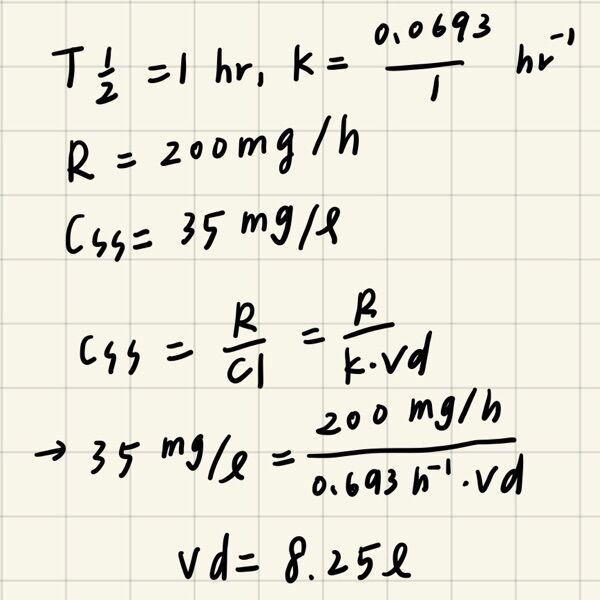 T 1/2 = 1 hr, k = 0.0693/1 hr⁻¹
R = 200 mg/h
Css = 35 mg/l
Css = R/Cl = R/k·Vd
→ 35 mg/l = 200 mg/h / 0.693 h⁻¹·Vd
Vd = 8.25 l